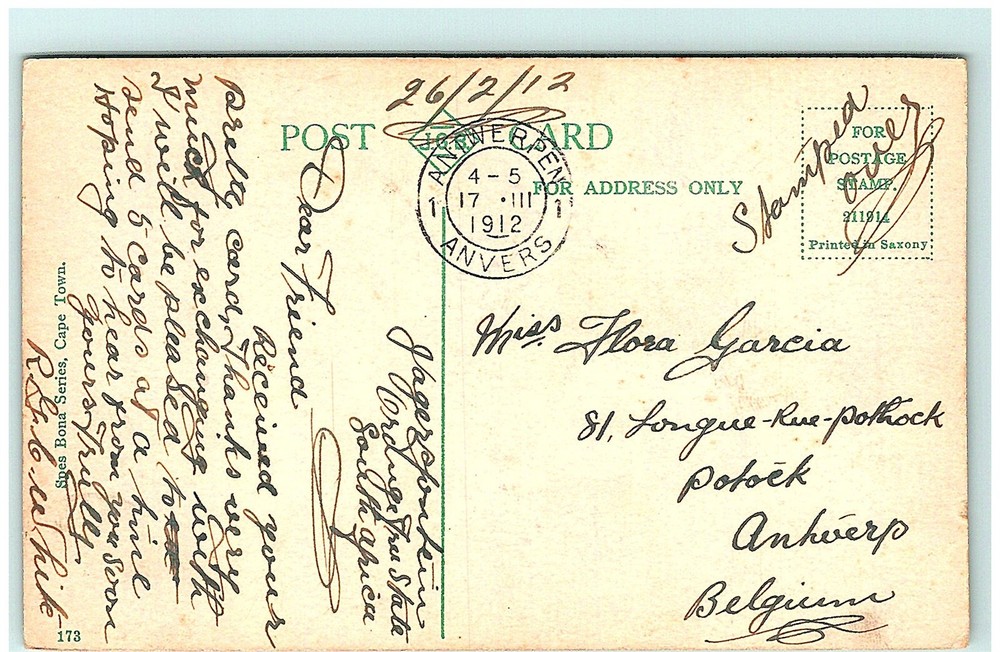 26/2/12
POST CARD
J.G.B.
FOR ADDRESS ONLY
ANTWERPEN
1 4-5 1
17 · III
1912
ANVERS
FOR
POSTAGE
STAMP.
211914
Printed in Saxony
Stamped
over
Miss Flora Garcia
81, Longue-Rue-pothock
potock
Antwerp
Belgium
Jagersfontein
Orange Free State
South Africa
Dear Friend
Received your
card, Thanks very
much for exchanging with
I will be pleased to
send 5 cards at a time
Hoping to hear from you soon
Yours Truly
Spes Bona Series, Cape Town.
173